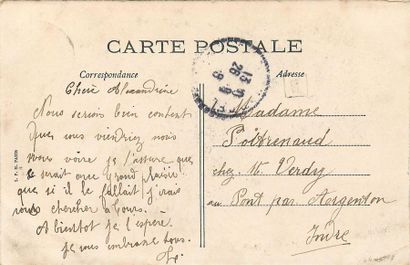 CARTE POSTALE
Correspondance
Adresse
Cherie Alexandrine
Nous serions bien content
que vous viendriez nous
vous voire je t'assure que
se serait avec Grand plaisir
que si il le fallait j'irais
vous chercher à Tours.
A bientot je l'espère
je vous embrasse tous.
Madame
Poitrenaud
chez M. Verdy
au Pont par Argenton
Indre